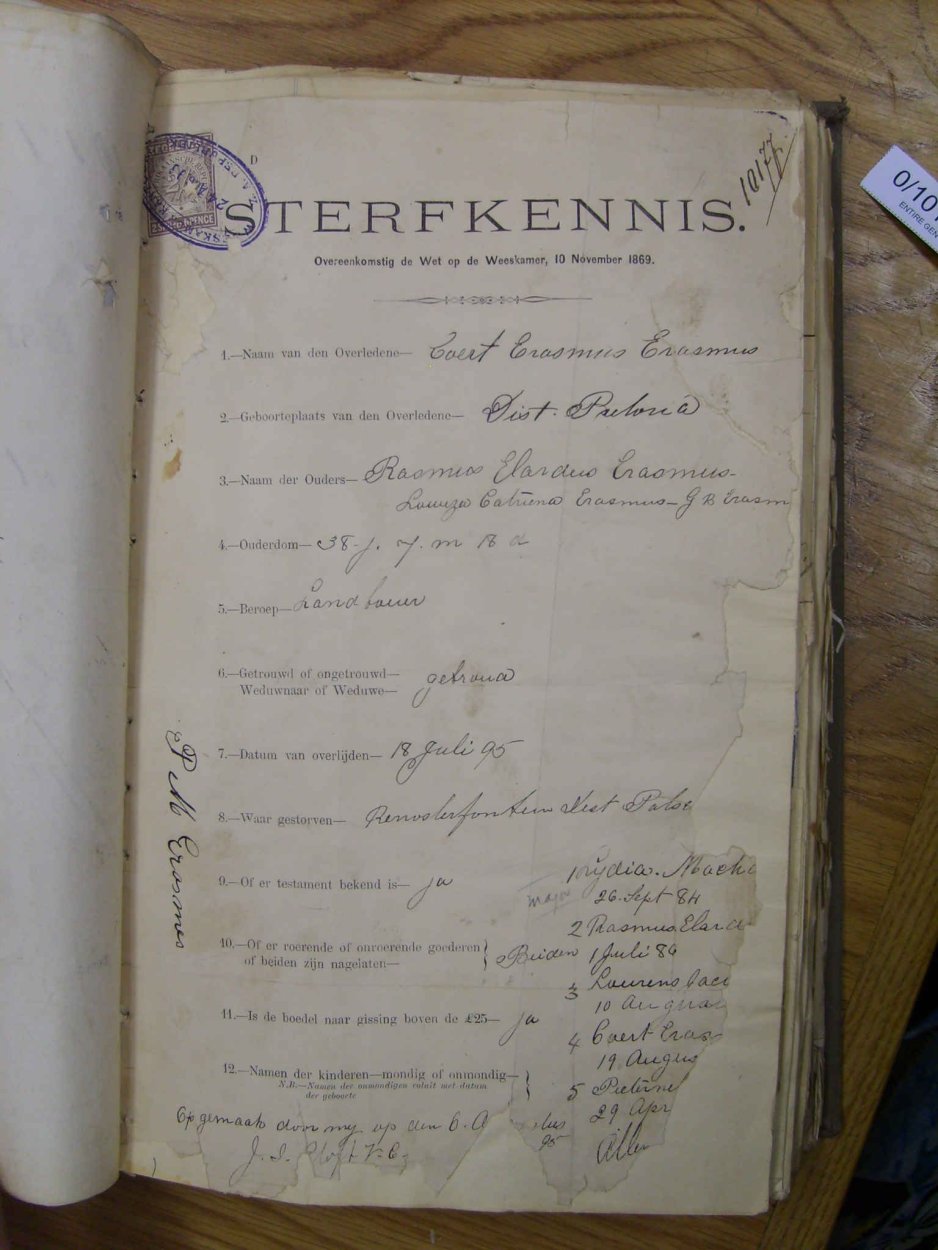 D
10177
STERFKENNIS.
Overeenkomstig de Wet op de Weeskamer, 10 November 1869.
1.—Naam van den Overledene— Coert Erasmus Erasmus
2.—Geboorteplaats van den Overledene— Dist. Pretoria
3.—Naam der Ouders— Rasmus Elardus Erasmus-
Louwza Catriena Erasmus- G B Erasm
4.—Ouderdom— 38 j. 7 m 18 d
5.—Beroep— Landbouer
6.—Getrouwd of ongetrouwd—
Weduwnaar of Weduwe— getroud
7.—Datum van overlijden— 18 Juli 95
8.—Waar gestorven— Renosterfontein Dist Potse
9.—Of er testament bekend is— ja
10.—Of er roerende of onroerende goederen
of beiden zijn nagelaten— Beiden
11.—Is de boedel naar gissing boven de £25— ja
12.—Namen der kinderen—mondig of onmondig—
N.B.—Namen der onmondigen voluit met datum
der geboorte
major
1 Lydia. Mach
26 Sept 84
2 Rasmus Elard
1 Juli 86
3 Lourens
10 Augus
4 Coert Eras
19 Augus
5 Pieterne
29 Apr
Allen
Opgemaak door my op den 6. A tus
95
J. S. V. C.
P M Erasmus
0/10
ENTIRE GEN